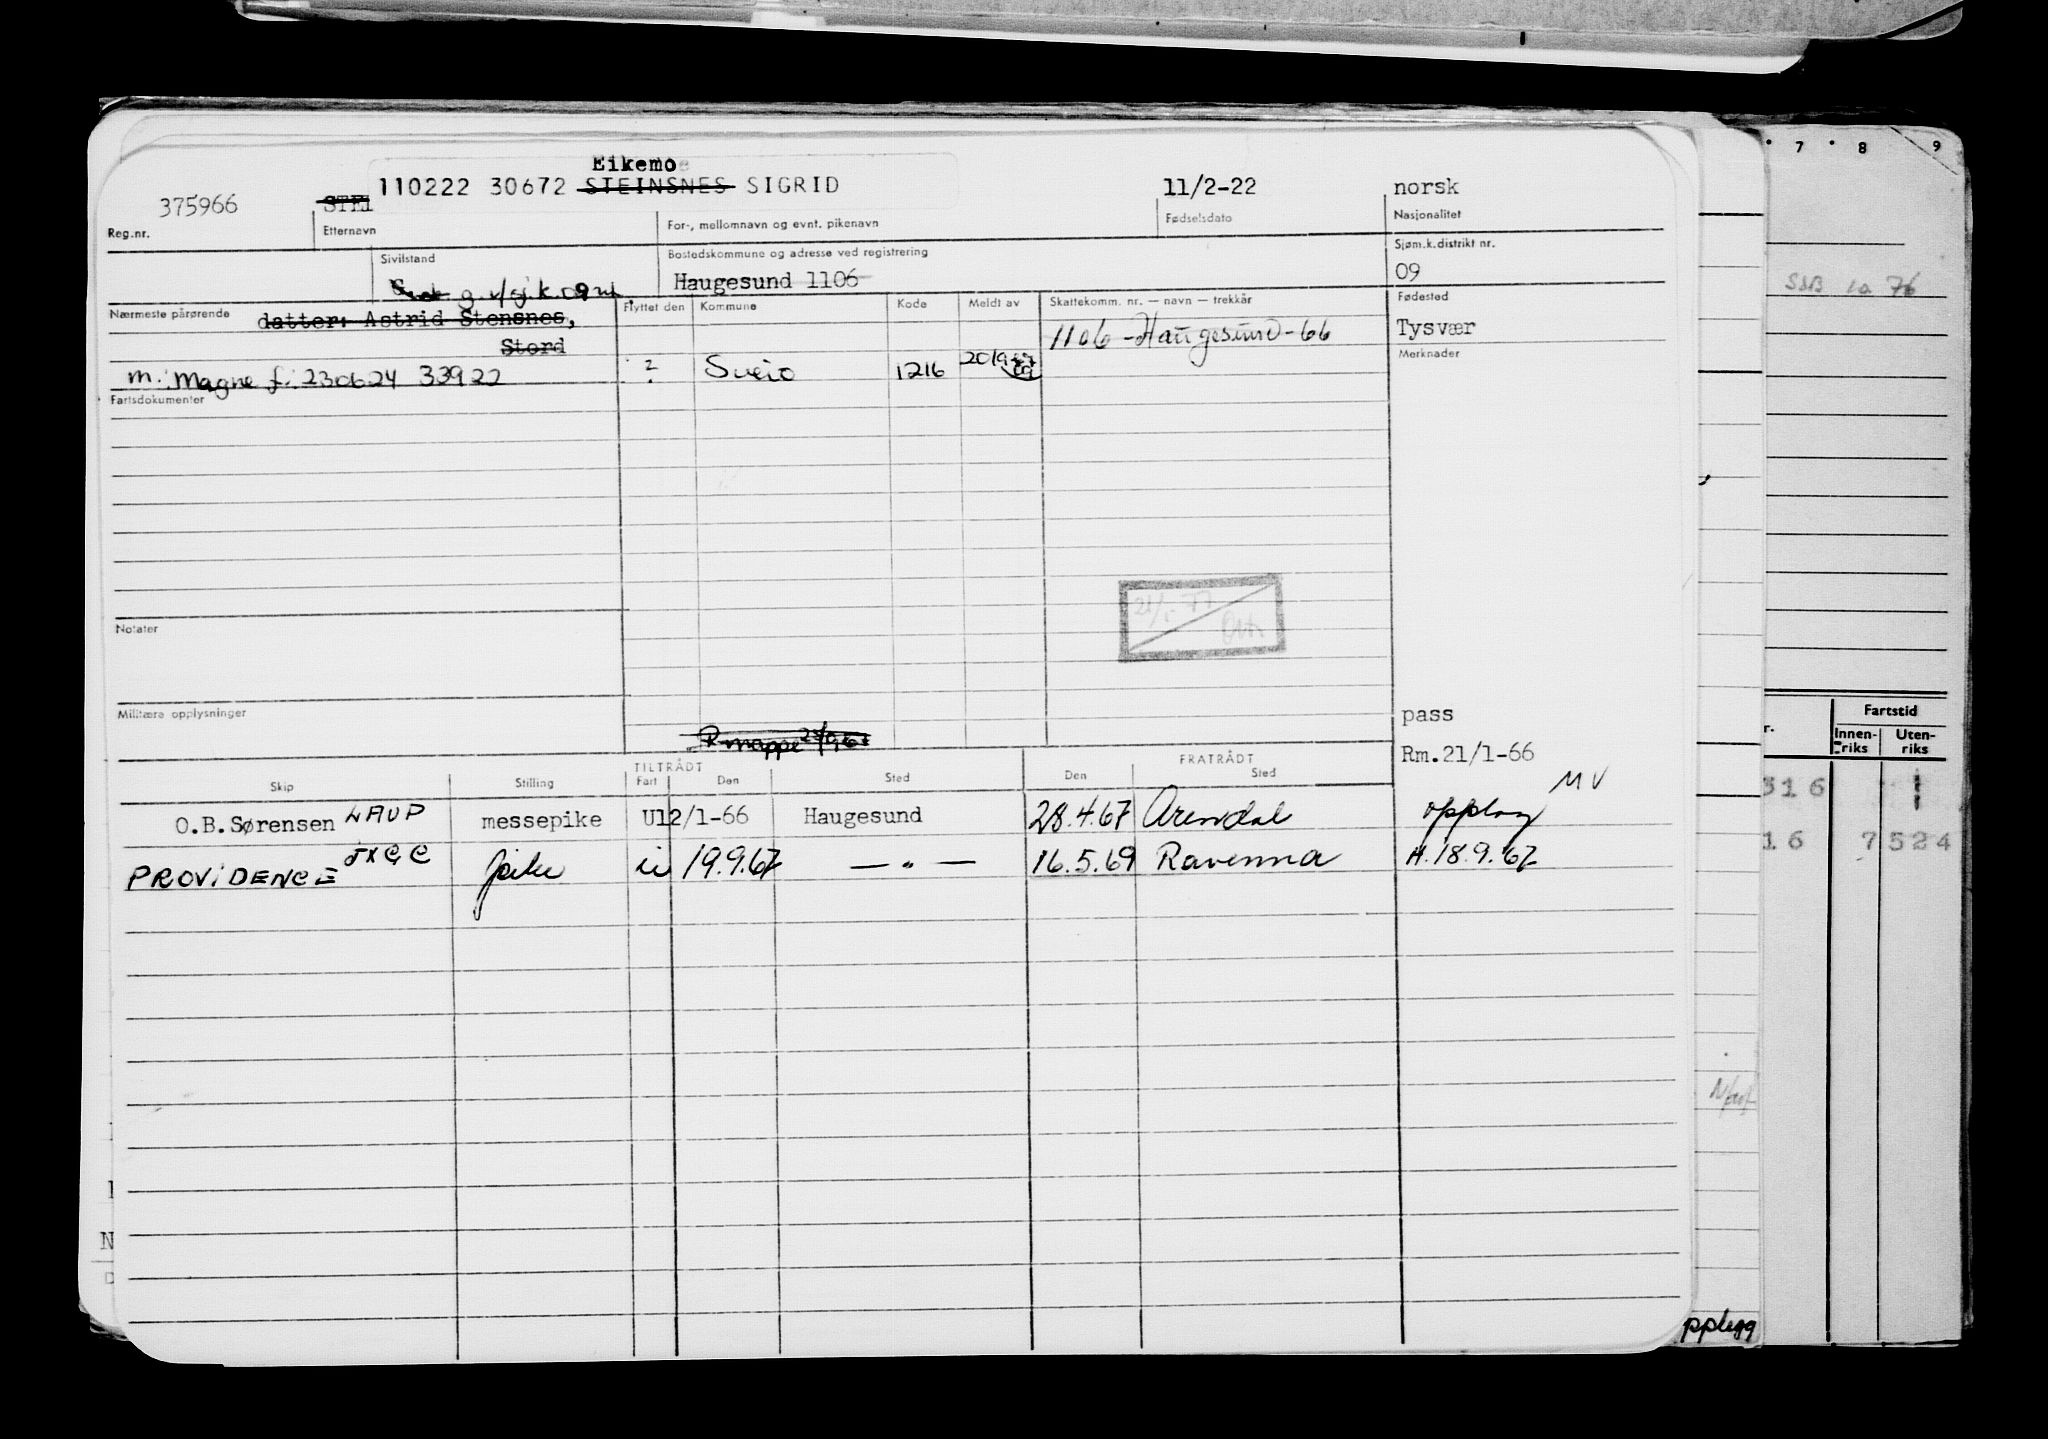 7 · 8 9
Eikemoe
110222 30672 STEINSNES SIGRID 11/2-22 norsk
375966 STEI
Reg.nr. Etternavn For-, mellomnavn og evnt. pikenavn Fødselsdato Nasjonalitet
Sivilstand Bostedskommune og adresse ved registrering Sjøm.k.distrikt nr.
g. v/sj.k. 09 Haugesund 1106 09
SSB 76
Nærmeste pårørende Flyttet den Kommune Kode Meldt av Skattekomm. nr. — navn — trekkår Fødested
datter: Astrid Stensnes, 1106 - Haugesund - 66 Tysvær
Stord Merknader
m: Magne f: 230624 33922 ? Sveio 1216 20/9
Fartsdokumenter
21/1-77
Notater
Militære opplysninger pass
R mappe
Rm.21/1-66
Fartstid
Innen-riks Uten-riks
TILTRÅDT FRATRÅDT
Skip Stilling Fart Den Sted Den Sted
MV
O.B.Sørensen LAUP messepike U12/1-66 Haugesund 28.4.67 Arendal opplag
316 1
PROVIDENCE JXCC pike u 19.9.67 — " — 16.5.69 Ravenna H.18.9.67
16 7524
N
pplegg